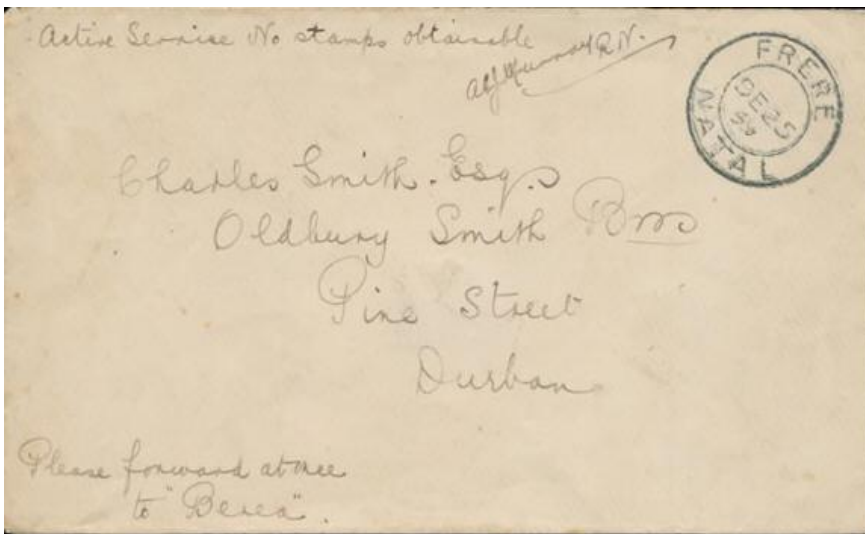 Active Service No stamps obtainable
Murray R.N.
FRERE
DE 25
99
NATAL
Charles Smith. Esq.
Oldbury Smith Bros
Pine Street
Durban
Please forward at once
to "Berea".